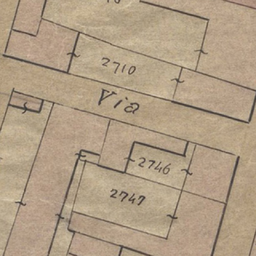 2710
Via
2746
2747